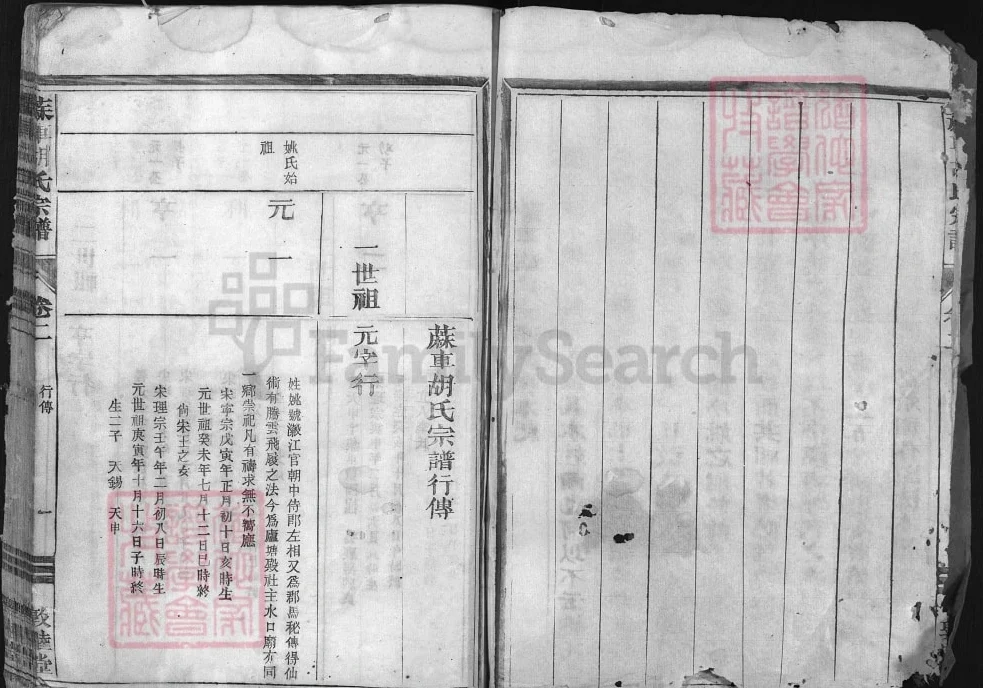 蔴車胡氏宗譜行傳
一世祖 元字行
姚氏始
祖
元一
姓姚號瀫江官朝中侍郎左相又爲郡馬秘傳得仙
術有騰雲飛履之法今爲廬塘殿社主水口廟亦同
一鄉崇祀凡有禱求無不響應
宋寧宗戊寅年正月初十日亥時生
元世祖癸未年七月十二日巳時終
尙宋王之女
宋理宗壬午年二月初八日辰時生
元世祖庚寅年十月十六日子時終
生二子 天錫 天申
蔴車胡氏宗譜
卷二
行傳
一
敦睦堂
FamilySearch